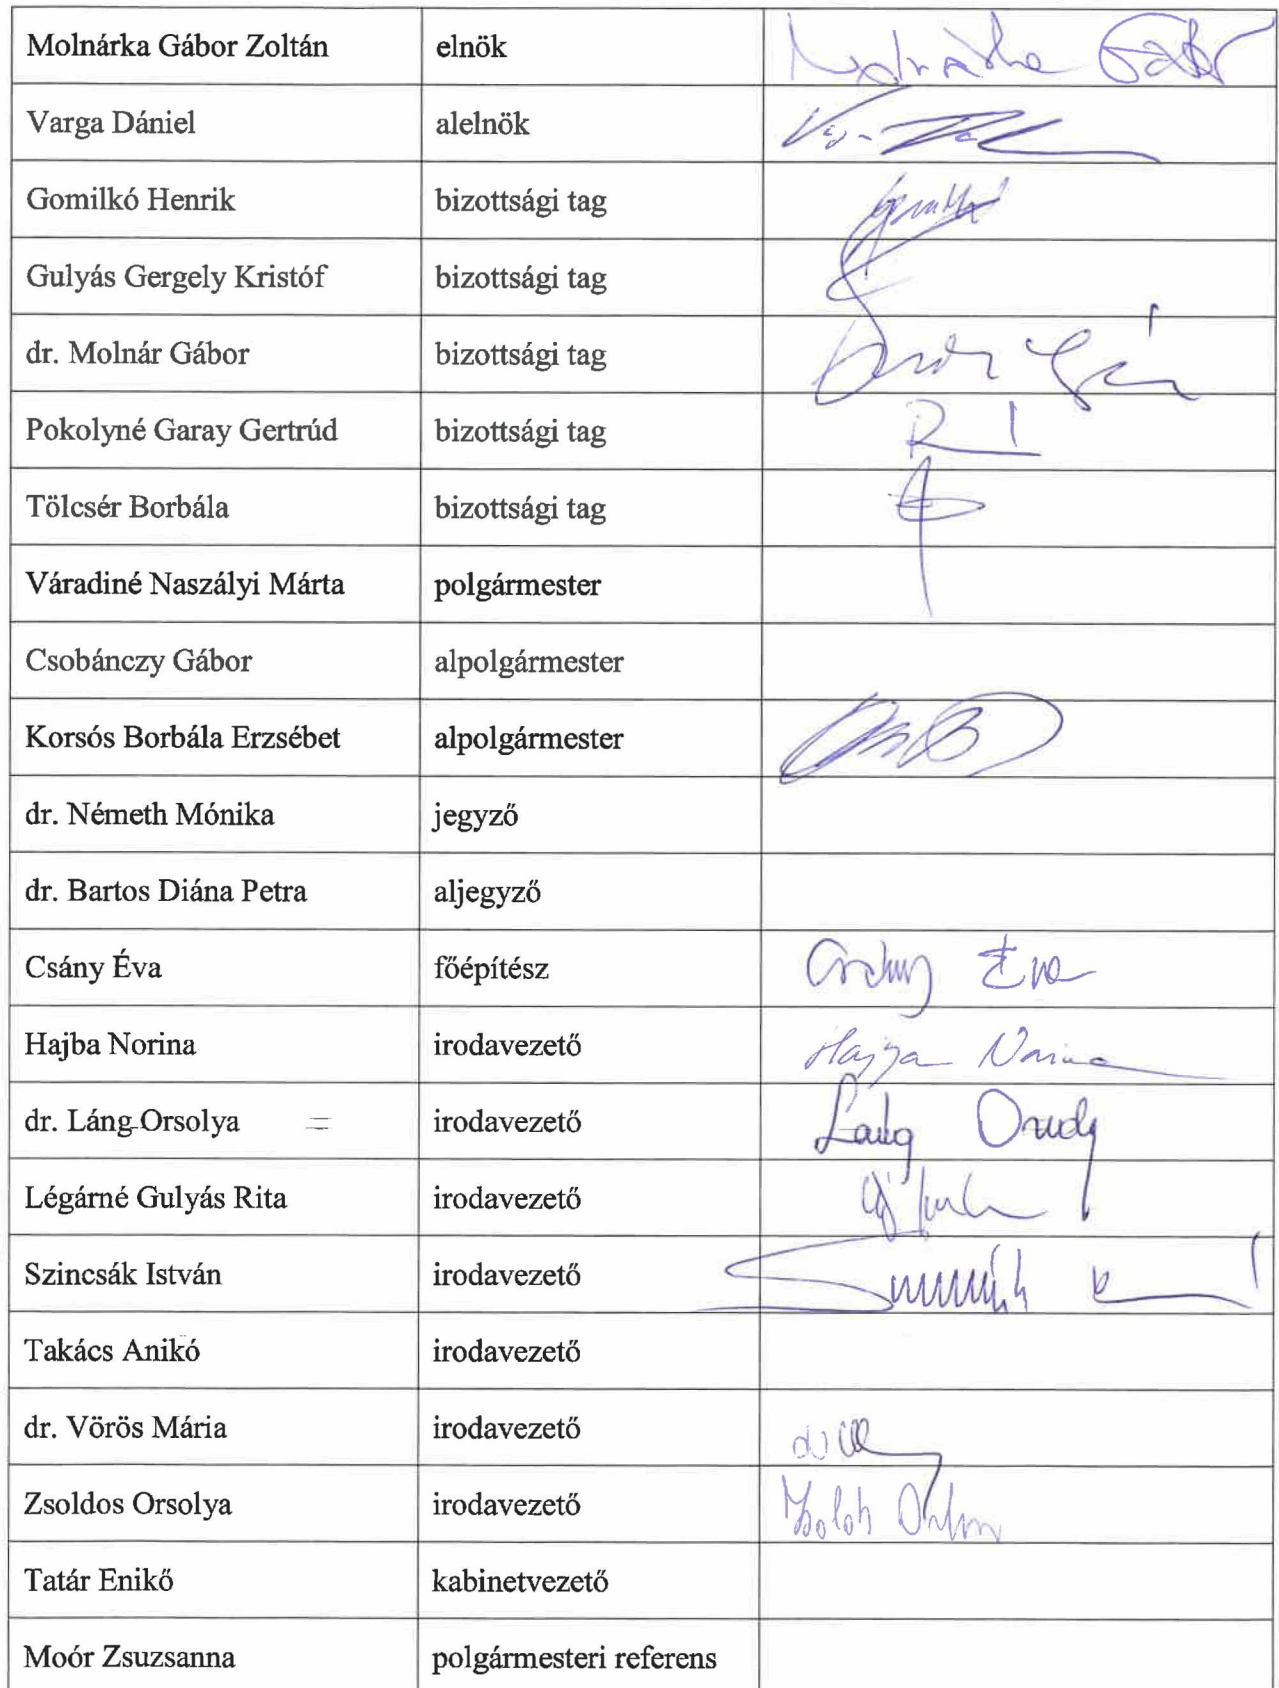 Molnárka Gábor Zoltán elnök Molnárka Gábor
Varga Dániel alelnök
Gomilkó Henrik bizottsági tag
Gulyás Gergely Kristóf bizottsági tag
dr. Molnár Gábor bizottsági tag
Pokolyné Garay Gertrúd bizottsági tag
Tölcsér Borbála bizottsági tag
Váradiné Naszályi Márta polgármester
Csobánczy Gábor alpolgármester
Korsós Borbála Erzsébet alpolgármester
dr. Németh Mónika jegyző
dr. Bartos Diána Petra aljegyző
Csány Éva főépítész Csány Éva
Hajba Norina irodavezető Hajba Norina
dr. Láng Orsolya = irodavezető Láng Orsolya
Légárné Gulyás Rita irodavezető
Szincsák István irodavezető
Takács Anikó irodavezető
dr. Vörös Mária irodavezető
Zsoldos Orsolya irodavezető
Tatár Enikő kabinetvezető
Moór Zsuzsanna polgármesteri referens